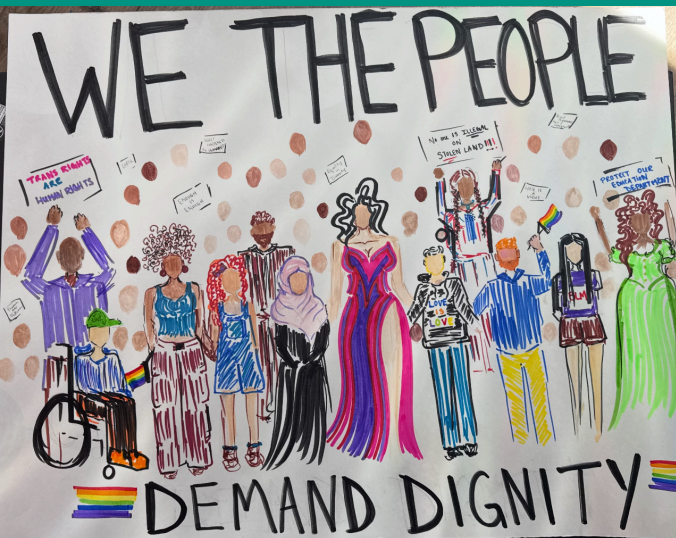 WE THE PEOPLE
TRANS RIGHTS
ARE
HUMAN RIGHTS
ENOUGH
IS
ENOUGH
NO ONE IS ILLEGAL
ON
STOLEN LAND!!!!
PROTECT OUR
EDUCATION
DEPARTMENT
LOVE
IS
LOVE
BLM
DEMAND DIGNITY